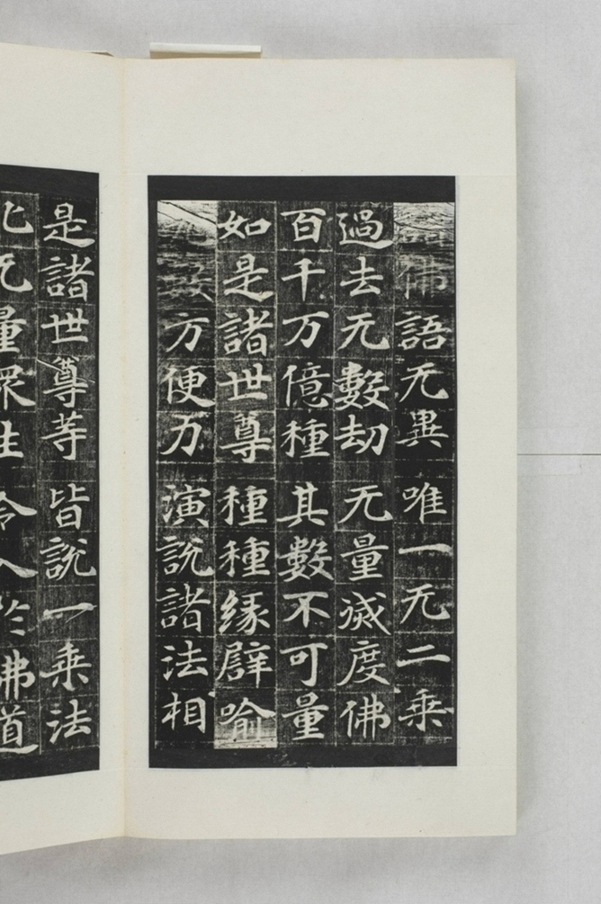 佛語无異 唯一无二乘
過去无數劫 无量滅度佛
百千万億種 其數不可量
如是諸世尊 種種緣譬喻
无數方便力 演說諸法相
是諸世尊等 皆說一乘法
化无量眾生 令入於佛道